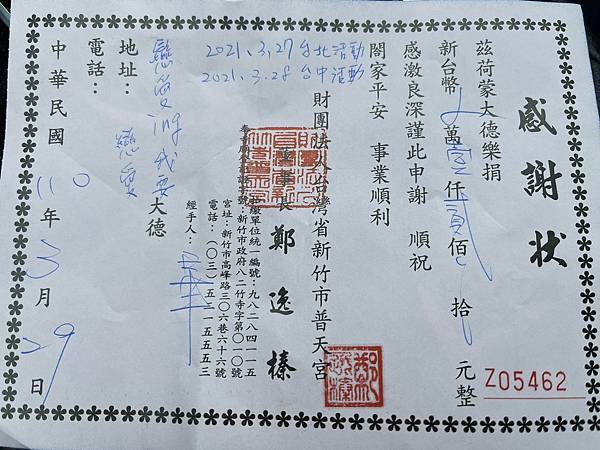 感謝狀
茲荷蒙大德樂捐
新台幣 萬壹仟貳佰 拾 元整
感激良深謹此申謝 順祝
閤家平安 事業順利
2021.3.27台北活動
2021.3.28台中活動
財團法人台灣省新竹市普天宮
董事長 鄭逸榛
統一編號：九八二八四一一五
新竹市政府八二竹寺字第〇一〇號
宮址：新竹市高峰路三〇六巷六十六號
電話：(〇三)五二一五五五三
經手人：
大德
地址：
電話：
中華民國110年3月29日
Z05462